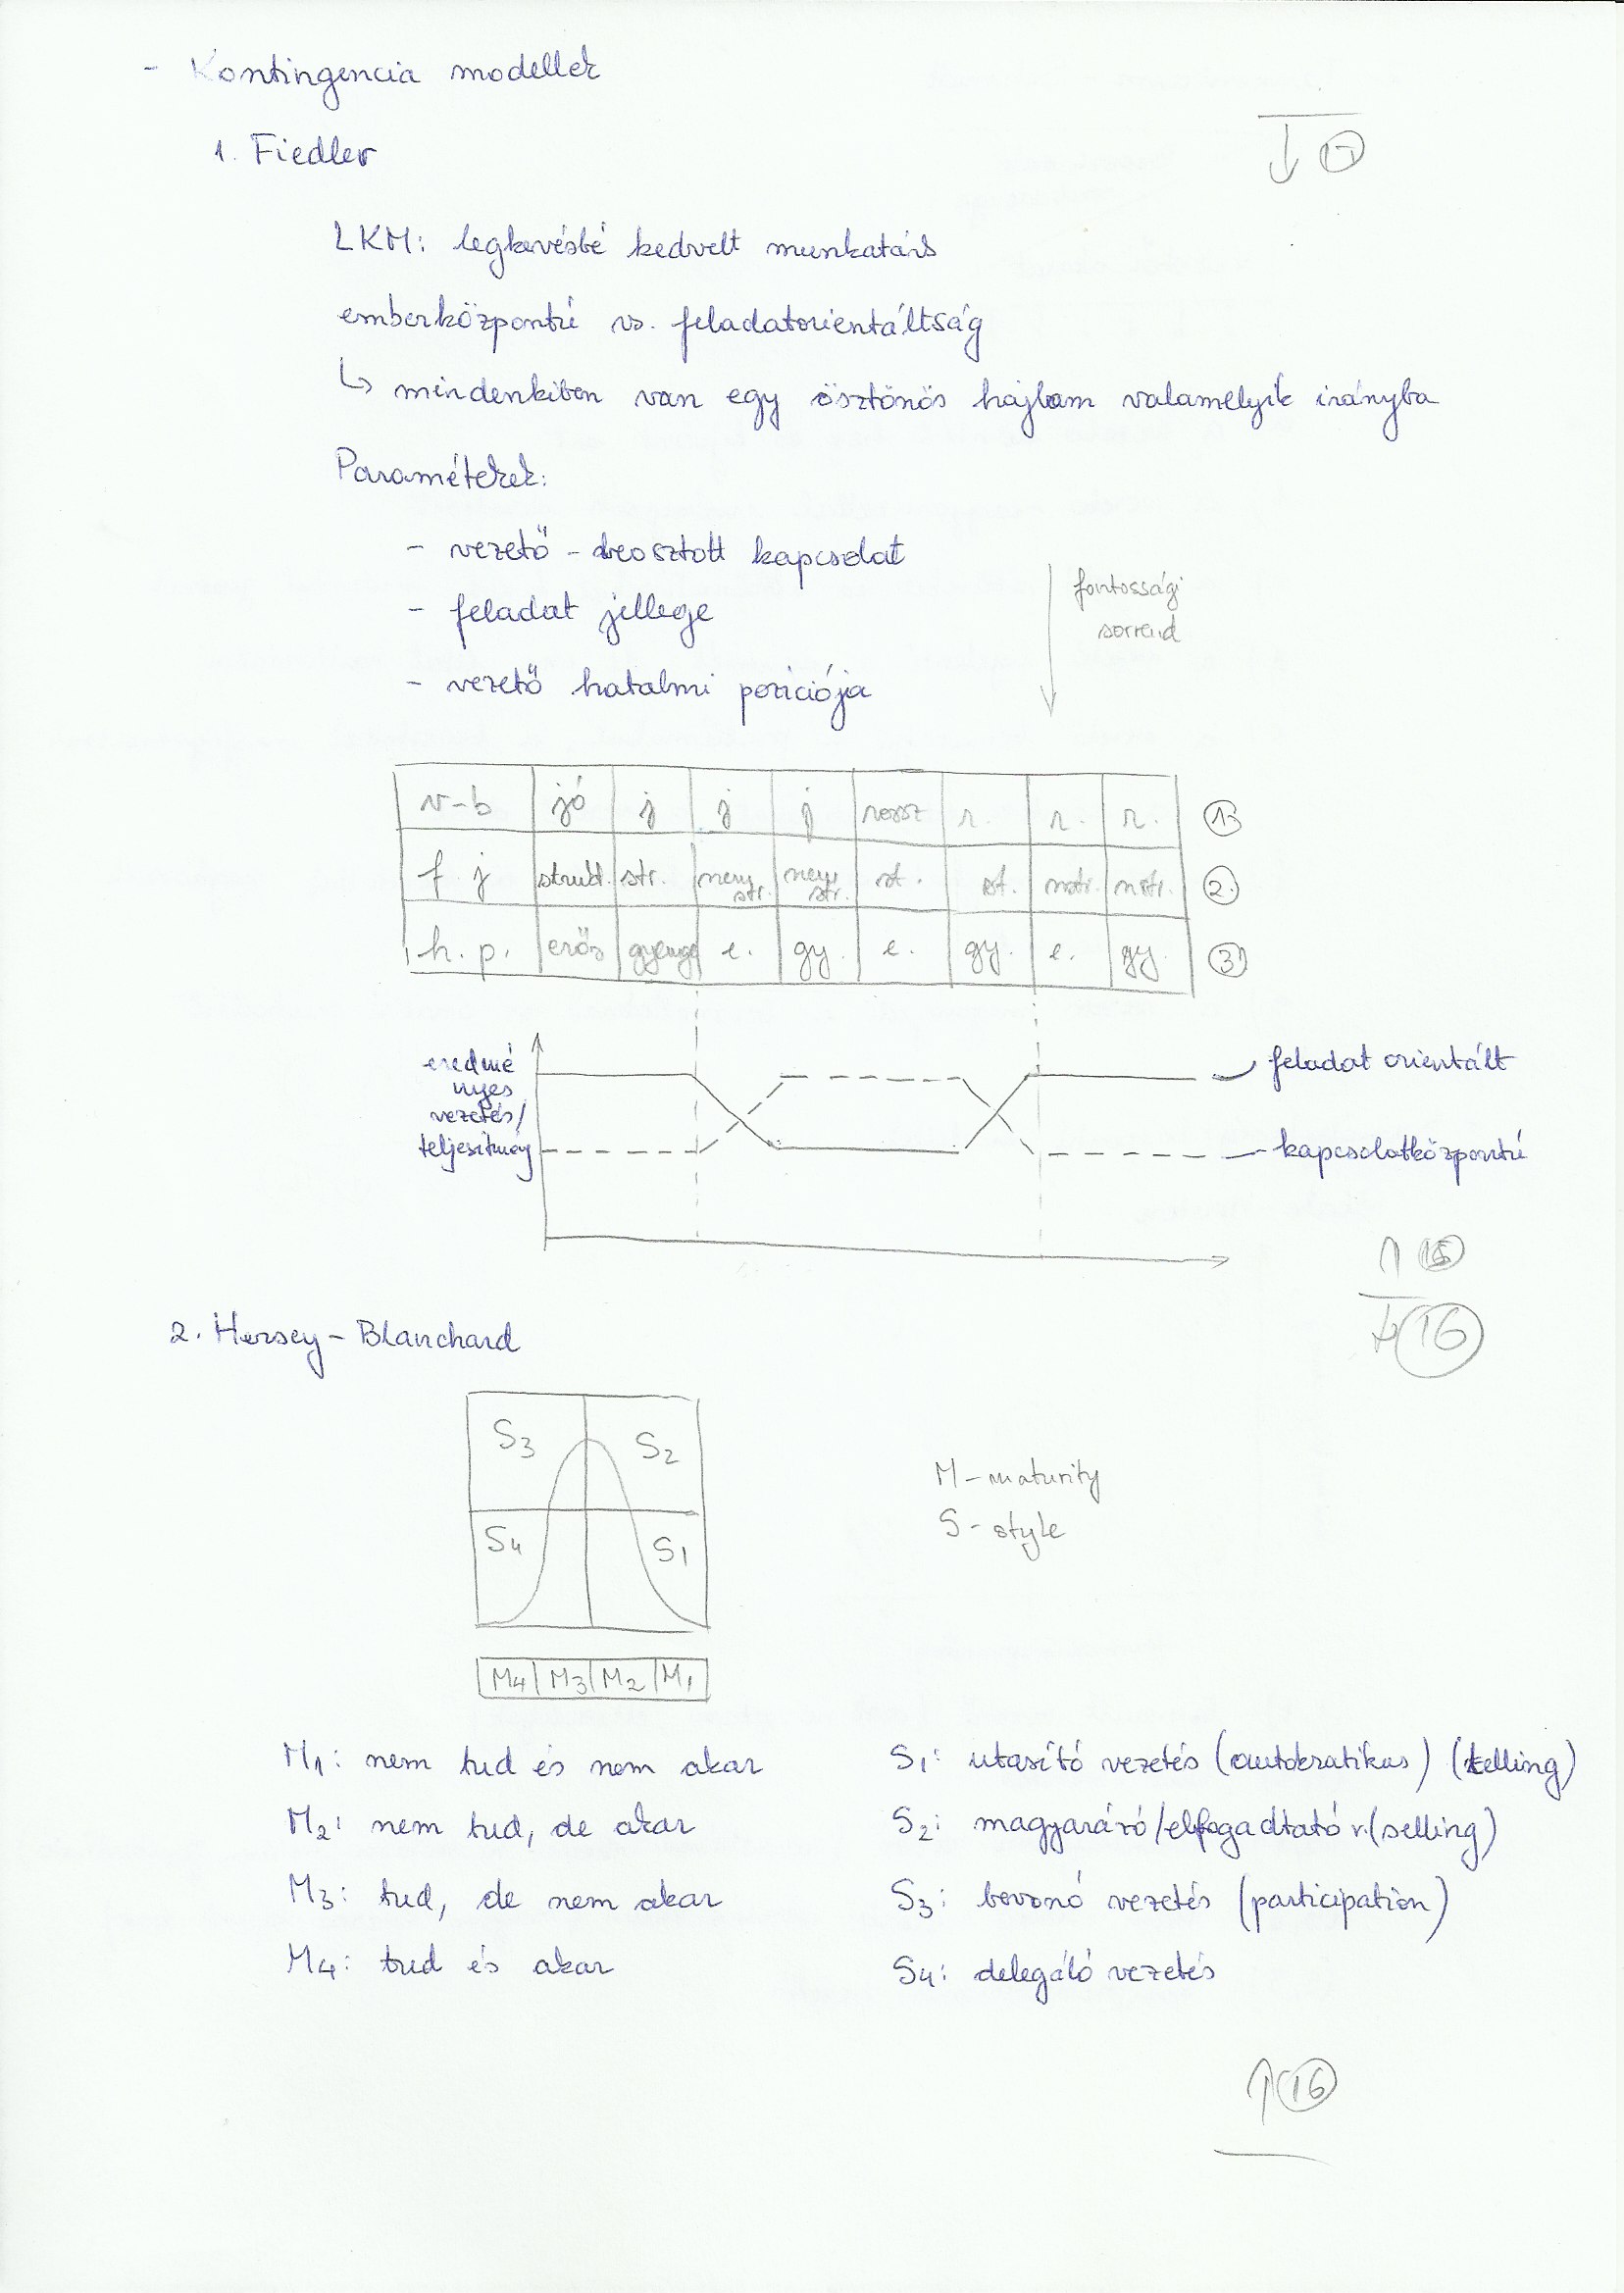 - Kontingencia modellek
1. Fiedler
LKM: legkevésbé kedvelt munkatárs
emberközpontú vs. feladatorientáltság
↳ mindenkiben van egy ösztönös hajlam valamelyik irányba
Paraméterek:
- vezető - beosztott kapcsolat
- feladat jellege
- vezető hatalmi pozíciója
fontossági
sorrend
v-b jó j j j rossz r. r. r. 1.
f j strukt. str. nem str. nem str. st. st. nstr. nstr. 2.
h. p. erős gyenge e. gy. e. gy. e. gy. 3.
eredmé
nyes
vezetés/
teljesítmény
feladat orientált
kapcsolatközpontú
↑ 15
↓ 16
2. Hersey - Blanchard
S3 S2
S4 S1
M4 M3 M2 M1
M - maturity
S - style
M1: nem tud és nem akar
M2: nem tud, de akar
M3: tud, de nem akar
M4: tud és akar
S1: utasító vezetés (autokratikus) (telling)
S2: magyarázó/elfogadtató v. (selling)
S3: bevonó vezetés (participation)
S4: delegáló vezetés
↑ 16